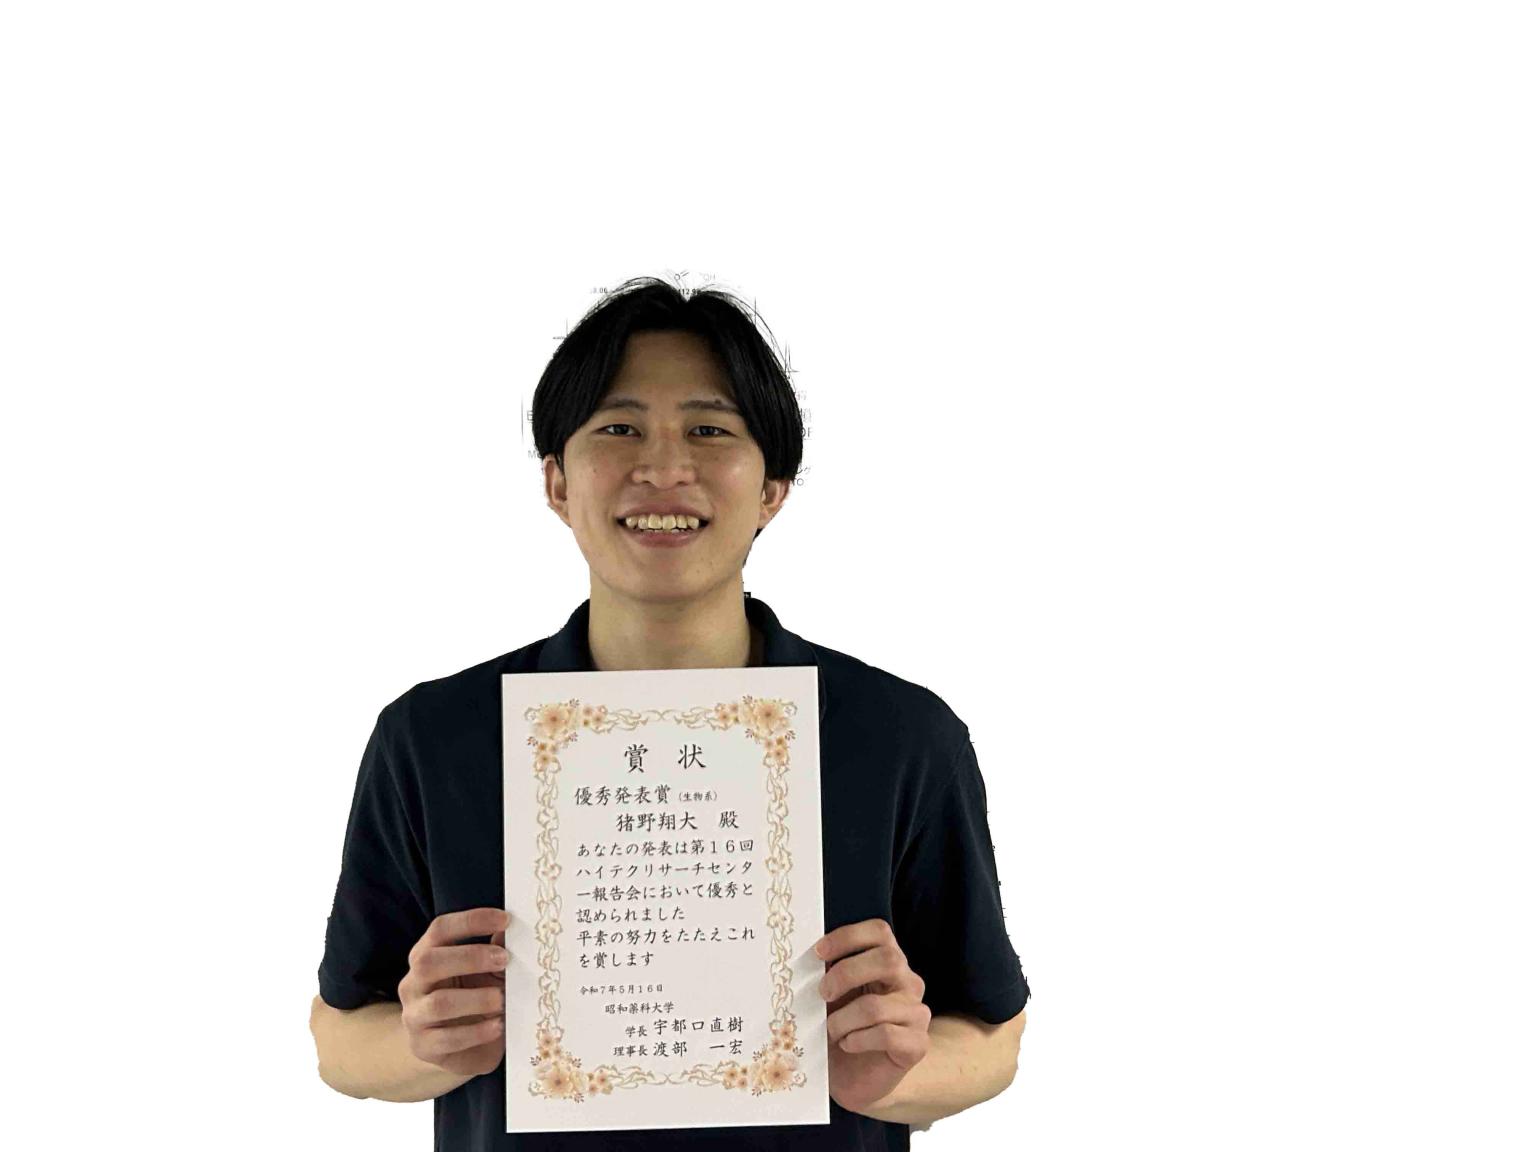 賞 状
優秀発表賞（生物系）
猪野翔大 殿
あなたの発表は第１６回
ハイテクリサーチセンタ
ー報告会において優秀と
認められました
平素の努力をたたえこれ
を賞します
令和７年５月１６日
昭和薬科大学
学長 宇都口直樹
理事長 渡部 一宏